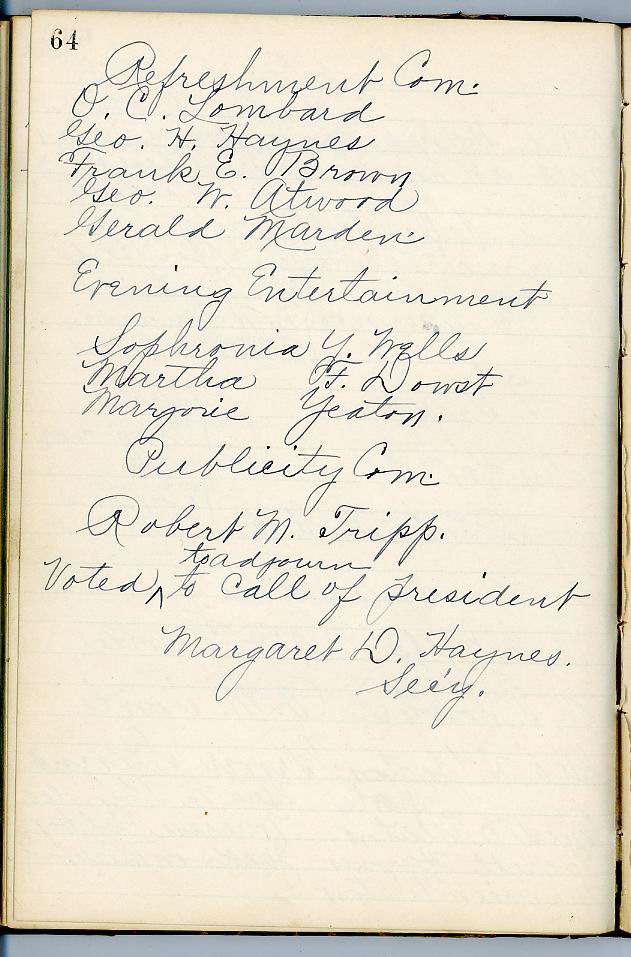 64
Refreshment Com.
O. C. Lombard
Geo. H. Haynes
Frank E. Brown
Geo. W. Atwood
Gerald Marden
Evening Entertainment
Sophronia Y. Wells
Martha F. Dowst
Marjorie Yeaton.
Publicity Com.
Robert M. Tripp.
to adjourn
Voted ^ to call of president
Margaret D. Haynes.
Sec'y.